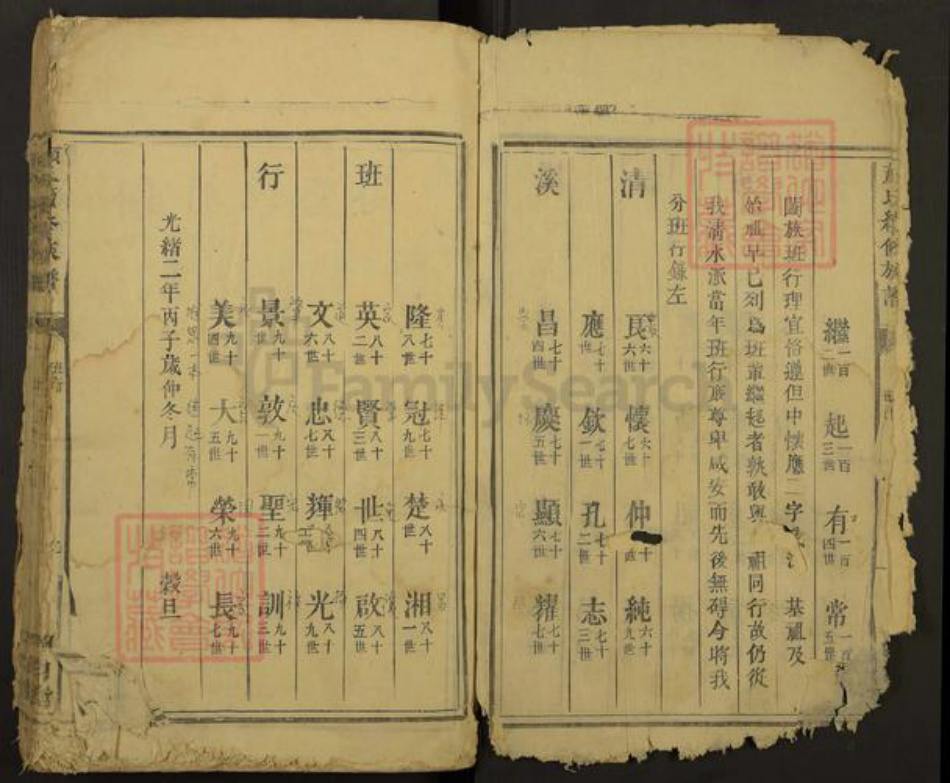 繼一百二世 起一百三世 有一百四世 常一百五世
闔族班行理宜恪遵但中懷應二字 基祖及
始祖早已列為班第繼起者孰敢與 祖同行故仍從
我清水派當年班行庶尊卑咸安而先後無碍今將我
分班行錄左
清 艮六十六世 懷六十七世 仲 十 世 純六十九世
應七十世 欽七十一世 孔七十二世 志七十三世
溪 昌七十四世 慶七十五世 顯七十六世 耀七十七世
隆七十八世 冠七十九世 楚八十世 湘八十一世
班 英八十二世 賢八十三世 世八十四世 啟八十五世
文八十六世 忠八十七世 輝八十 世 光八十九世
行 景九十世 敦九十一世 聖九十二世 訓九十三世
美九十四世 大九十五世 榮九十六世 長九十七世
光緒二年丙子歲仲冬月 穀旦
FamilySearch